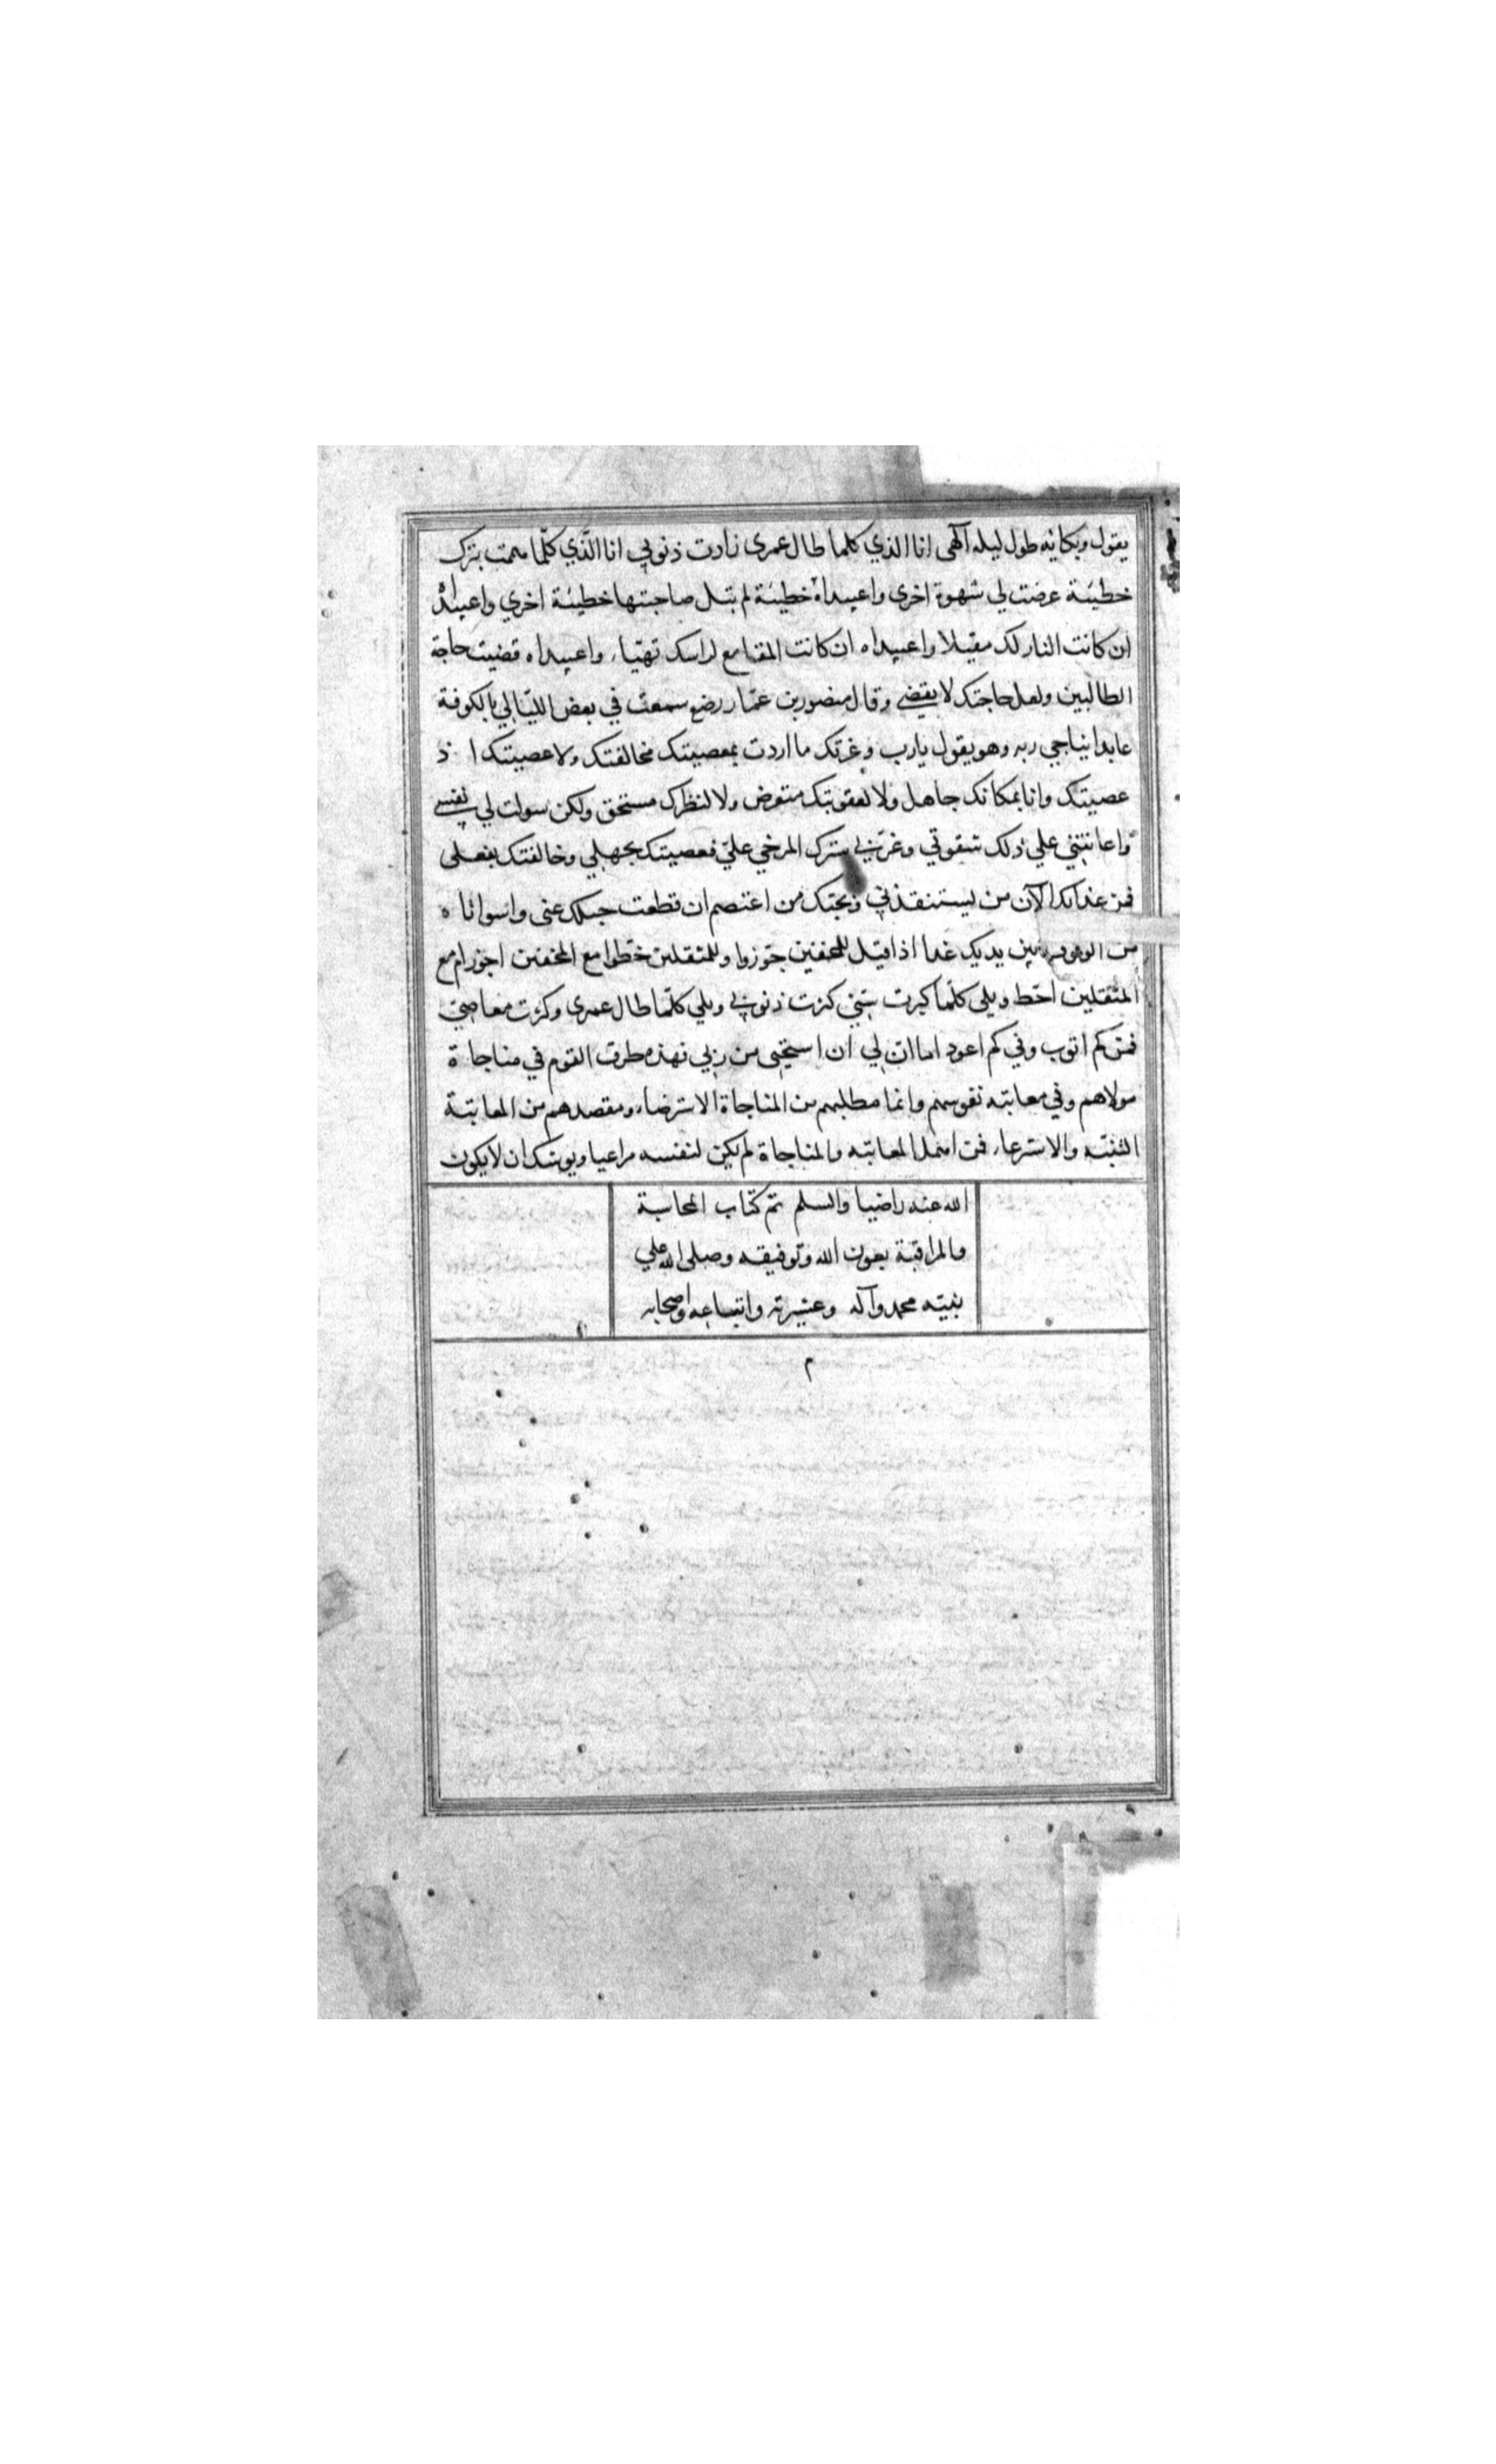 يقول وبكائه طول ليله الهى انا الذي كلما طال عمرى زادت ذنوبي انا الذي كلّما هممت بترك
خطيئة عرضت لي شهوة اخرى واعبيداه خطيئة لم تبل صاحبتها خطيئة اخري واعبيداه
ان كانت النار لك مقيلا واعبيداه ان كانت المقامع لراسك تهيّاء واعبيداه قضيت حاجة
الطالبين ولعل حاجتك لا يقضي وقال منصور بن عمّار رضع سمعت في بعض الليالي بالكوفة
عابدا يناجي ربه وهو يقول يارب وعزتك ما اردت بمعصيتك مخالفتك ولا عصيتك اذ
عصيتك وانا بمكانك جاهل ولا لعقوبتك متعرض ولا لنظرك مستحق ولكن سولت لي نفسي
واعانتني علي ذلك شقوتي وغرّني سترك المرخي عليّ فعصيتك بجهلي وخالفتك بفعلى
فمن عذابك الآن من يستنقذني وبحبك من اعتصم ان قطعت حبلك عنى واسواتاه
من الوقوف بين يديك غدا اذا قيل للمخفين جوّزوا وللمثقلين حطّوا مع المخفين اجوز ام مع
المثقلين احّط ويلي كلّما كبرت سنّي كثرت ذنوبي ويلي كلّما طال عمرى وكثرت معاصيّ
فمن كم اتوب وفي كم اعود اما ان لي ان استحيى من ربي فهذه طرق القوم في مناجاة
مولاهم وفي معاتبة نفوسهم وانما مطلبهم من المناجاة الاسترضاء ومقصدهم من المعاتبة
التنبّه والاسترعاء فمن اهمل المعاتبة والمناجاة لم يكن لنفسه مراعيا ويوشك ان لا يكون
الله عنه راضيا والسلم تم كتاب المحاسبة
والمراقبة بعون الله وتوفيقه وصلى الله علي
نبيّه محمد وآله وعشيرته واتباعه واصحابه
م